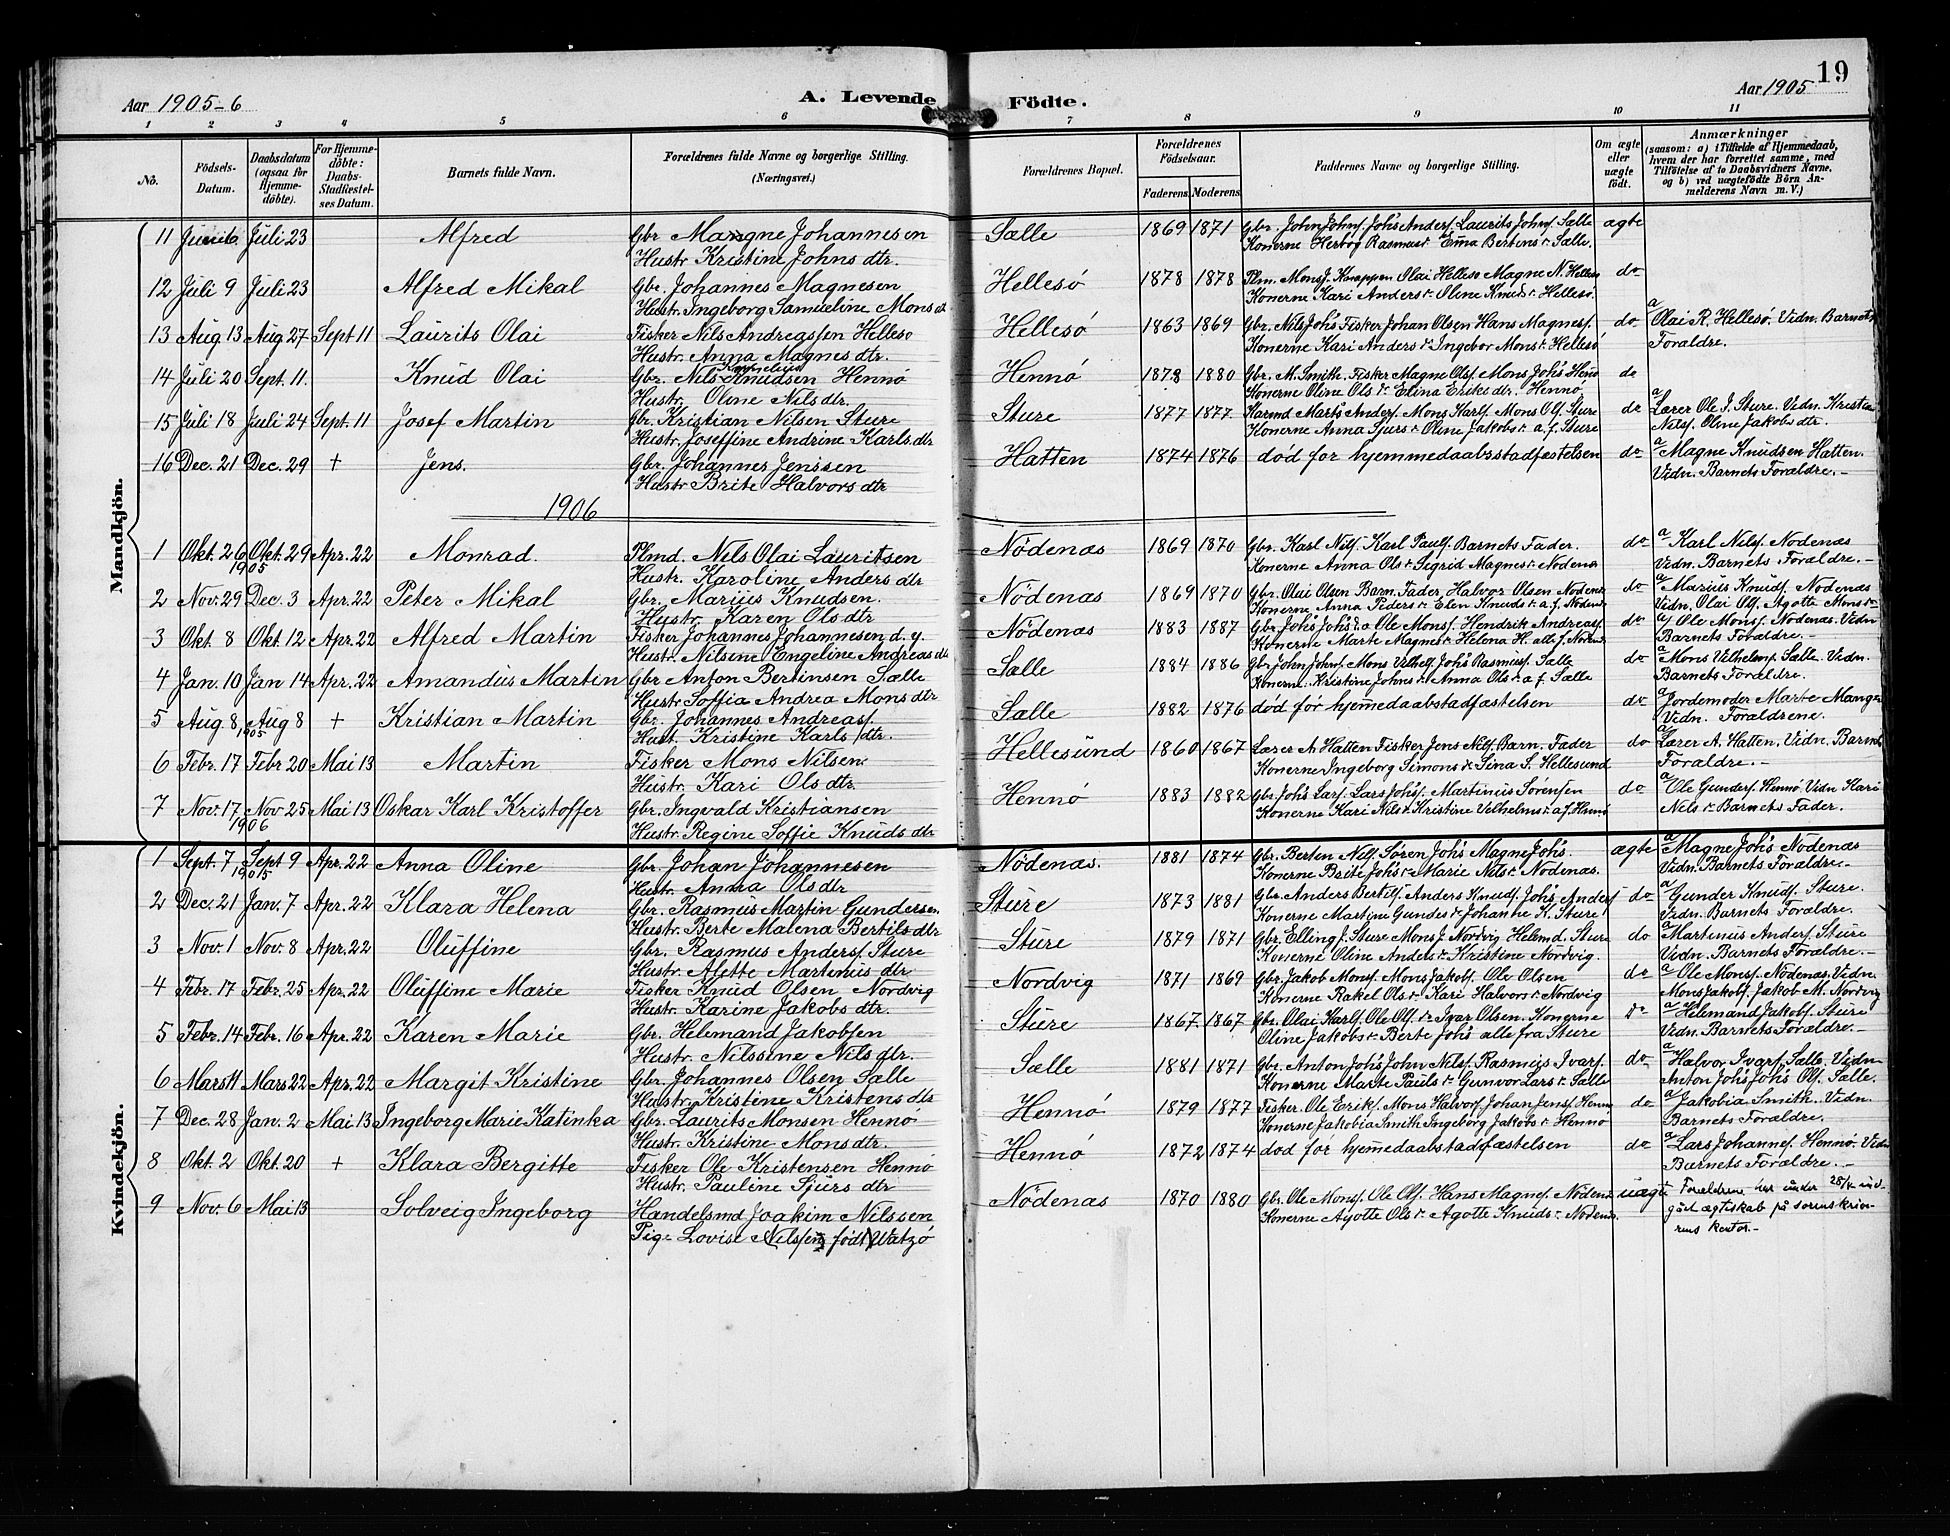 19
Aar 1905-6
A. Levende Födte.
Aar 1905
1 2 3 4 5 6 7 8 9 10 11
No.
Födsels-Datum.
Daabsdatum (ogsaa for Hjemme-döbte).
For Hjemme-döbte: Daabs-Stadfæstel-ses Datum.
Barnets fulde Navn.
Forældrenes fulde Navne og borgerlige Stilling. (Næringsvei.)
Forældrenes Bopæl.
Forældrenes Födselsaar.
Faderens. Moderens.
Faddernes Navne og borgerlige Stilling.
Om ægte eller uægte födt.
Anmærkninger (saasom: a) i Tilfælde af Hjemmedaab, hvem der har forrettet samme, med Tilföielse af to Daabsvidners Navne, og b) ved uægtefödte Börn An-melderens Navn m. V.)
Mandkjön.
11 Juli 23 Alfred Gbr. Magne Johannesen Sælle 1869 1871 Gbr. John Johns. Johs Anders. Laurits Johns. Sælle ægte
Hustr Kristine Johns dtr. Konerne Herbog Rasmusdr Ema Bertins dr. Sælle.
12 Juli 9 Juli 23 Alfred Mikal Gbr. Johannes Magnesen Hellesö 1878 1878 Plm. Mons J. Knappen Olai Hellesö Magne N. Helles do
Hustr. Ingeborg Samueline Mons dt Konerne Kari Anders dr. Oline Knuds dr. Hellesö.
13 Aug 13 Aug 27 Sept 11 Laurits Olai Fisker Nils Andreassen Helleso Hellesö 1863 1869 Gbr. Nils Johs Fisker Johan Olsen Hans Magnes. do a Olai R. Hellesö. Vidn. Barnets
Hustr. Anna Magnes dtr. Konerne Kari Anders dr Ingebor Mons dr Hellesö Foraldre.
14 Juli 20 Sept. 11. Knud Olai Gbr. Nils Kornelius Knudsen Hennö Hennö 1878 1880 Gbr. M. Smith. Fisker Magne Ols. Mons Johs Henö do
Hustr. Oline Nils dtr. Konerne Oline Ols dr. Elina Eriks dtr. Hennö
15 Juli 18 Juli 24 Sept. 11 Josef Martin Gbr. Kristian Nilsen Sture Sture 1877 1877 Marts Anders. Mons Karls. Mons Ols. Sture do a Lærer Ole J. Sture. Vidn. Kristian
Hustr. Joseffine Andrine Karls dtr Konerne Anna Sjurs dr. Oline Jakobs dr. a. f. Sture Nils. Oline Jakobs dtr.
16 Dec. 21 Dec. 29 + Jens. Gbr. Johannes Jenssen Hatten 1874 1876 död for hjemmedaabsstadfæstelsen do a Magne Knudsen Hatten.
Hustr Brite Halvors dtr Vidn. Barnets Foraldre.
1906
1 Okt. 26 1905 Okt. 29 Apr. 22 Monrad. Plmd. Nils Olai Lauritsen Nödenæs 1869 1870 Gbr. Karl Nils. Karl Pauls. Barnets Fader. do a Karl Nils. Nodenæs
Hustr. Karoline Anders dtr Konerne Anna Ols dr Sigrid Magnes dr Nödenæs Vidn. Barnets Foraldre.
2 Nov. 29 Dec. 3 Apr. 22 Peter Mikal Gbr. Marius Knudsen. Nödenæs 1869 1870 Gbr. Olai Olsen Barn. Fader, Halvor Olsen Nodenæs do a Marius Knuds. Nodenæs
Hustr Karen Ols dtr Konerne Anna Peders dr. Elen Knuds dr. a. f. Nödenæs Vidn. Olai Ols. Agotte Mons dr
3 Okt. 8 Okt 12 Apr. 22 Alfred Martin Fisker Johannes Johannesen d. y. Nödenæs 1883 1887 Gbr. Johs Johs d. a Ole Mons. Hendrik Andreas. do a Ole Mons. Nodenæs. Vidn
Hustr. Nilsine Engeline Andreas dtr Konerne Marte Magnes dr Helena H. alle f. Nödenæs Barnets Foraldre.
4 Jan. 10 Jan 14 Apr. 22 Amandus Martin Gbr Anton Bertinsen Sælle Sælle 1884 1886 Gbr. John Johns. Mons Vilhelms. Johs Rasmus. Sælle do a Mons Vilhelms. Sælle. Vidn.
Hustr Soffia Andrea Mons dtr Konerne. Kristine Johns dr. Anna Ols dr. a. f. Sælle Barnets Foraldre.
5 Aug. 8 1905 Aug 8 + Kristian Martin Gbr. Johannes Andreas. Sælle 1882 1876 död for hjemmedaabstadfæstelsen do a Jordemoder Marte Manger
Hust. Kristine Karls dtr. Vidn. Foraldrene.
6 Febr. 17 Febr 20 Mai 13 Martin Fisker Mons Nilsen Hellesund 1860 1867 Lærer A. Hatten Fisker Jens Nils. Barn. Fader do a Lærer A. Hatten. Vidn. Barnets
Hustr. Kari Ols dtr. Konerne Ingeborg Simons dr. Sina S. Hellesund Foraldre.
7 Nov. 17 1906 Nov. 25 Mai 13 Oskar Karl Kristoffer Gbr. Ingvald Kristiansen Hennö 1883 1882 Gbr. Johs Lars. Lars Johs. Martinius Sörensen do a Ole Gunders. Hennö. Vidn Kari
Hustr. Regine Soffie Knuds dtr Konerne Kari Nils dr. Kristine Velhelms dr. a. f. Hennö Nels dr. Barnets Fader.
Kvindekjön.
1 Sept. 7 1905 Sept 9 Apr. 22 Anna Oline Gbr. Johan Johannesen Nödenæs. 1881 1874 Gbr. Berten Nils. Sören Johs Magne Johs. ægte a Magne Johs Nödenæs
Hustr. Anna Ols dtr Konerne Brite Johs dr. Marie Nils dr. Nodenæs. Vidn. Barnets Foraldre.
2 Dec. 21 Jan. 7 Apr. 22 Klara Helena Gbr. Rasmus Martin Gundersen Sture 1873 1881 Gbr. Anders Bertils. Anders Knuds. Johs Anders. do a Gunder Knuds. Sture.
Hustr. Berte Malena Bertils dtr Konerne Martine Gundes dr Johanne K. Sture Vidn. Barnets Foraldre.
3 Nov. 1 Nov. 8 Apr. 22 Oluffine Gbr. Rasmus Anders. Sture Sture 1879 1871 Gbr. Elling J. Sture Mons J. Nordvig Helemd. Sture do a Martinus Anders. Sture
Hustr. Alette Martinus dtr Konerne Oline Anders dr Kristine Nordvig. Vidn. Barnets Foraldre.
4 Febr. 17 Febr. 25 Apr. 22 Oluffine Marie Fisker Knud Olsen Nordvig Nordvig 1871 1869 Gbr. Jakob Mons. Mons Jakobs. Ole Olsen do a Ole Mons. Nodenæs. Vidn.
Hustr. Karine Jakobs dtr. Konerne Rakel Ols dr. Kari Halvors dr. Nordvig Mons Jakobs. Jakob M. Nordvig
5 Febr. 14 Febr. 16 Apr. 22 Karen Marie Gbr. Helemand Jakobsen Sture 1867 1867 Gbr. Olai Karls. Ole Ols. Ivar Olsen. Konerne do a Helemand Jakobs. Sture
Hustr. Nilssine Nils dtr. Oline Jakobs dr. Berte Johs alle fra Sture Vidn. Barnets Foraldre.
6 Mars 11 Mars 22 Apr. 22 Margit Kristine Gbr. Johannes Olsen Sælle Sælle 1881 1871 Gbr. Anton Johs John Nils. Rasmus Ivars. do a Halvor Ivars. Sælle. Vidn
Hustr. Kristine Kristens dtr Konerne Marte Pauls dr. Gunvor Lars dr. Sælle Anton Johs Johs Ols. Sælle.
7 Dec. 28 Jan. 2 Mai 13 Ingeborg Marie Katinka Gbr. Laurits Monsen Hennö Hennö 1879 1877 Fisker. Ole Eriks. Mons Halvors. Johan Jens. Hennö do a Jakobia Smith. Vidn.
Hustr. Kristine Mons dtr. Konerne Jakobia Smith Ingeborg Jakobs dr. Hennö Barnets Foraldre.
8 Okt. 2 Okt. 20 + Klara Bergitte Fisker Ole Kristensen Hennö Hennö 1872 1874 död for hjemmedaabstadfæstelsen do a Lars Johannes. Hennö. Vidn
Hustr. Pauline Sjurs dtr Barnets Foraldre.
9 Nov. 6 Mai 13 Solveig Ingeborg Handelsmd Joakim Nilssen Nödenæs 1870 1880 Gbr. Ole Mons. Ole Ols. Hans Magnes. Nödenæs uægte Forældrene har under 25/4 ind-
Pige Lovise Nilssen født Watzö Konerne Agotte Ols dr. Agotte Knuds dr. Nödenæs. gaat ægteskab på sorenskrive-
rens kontor.